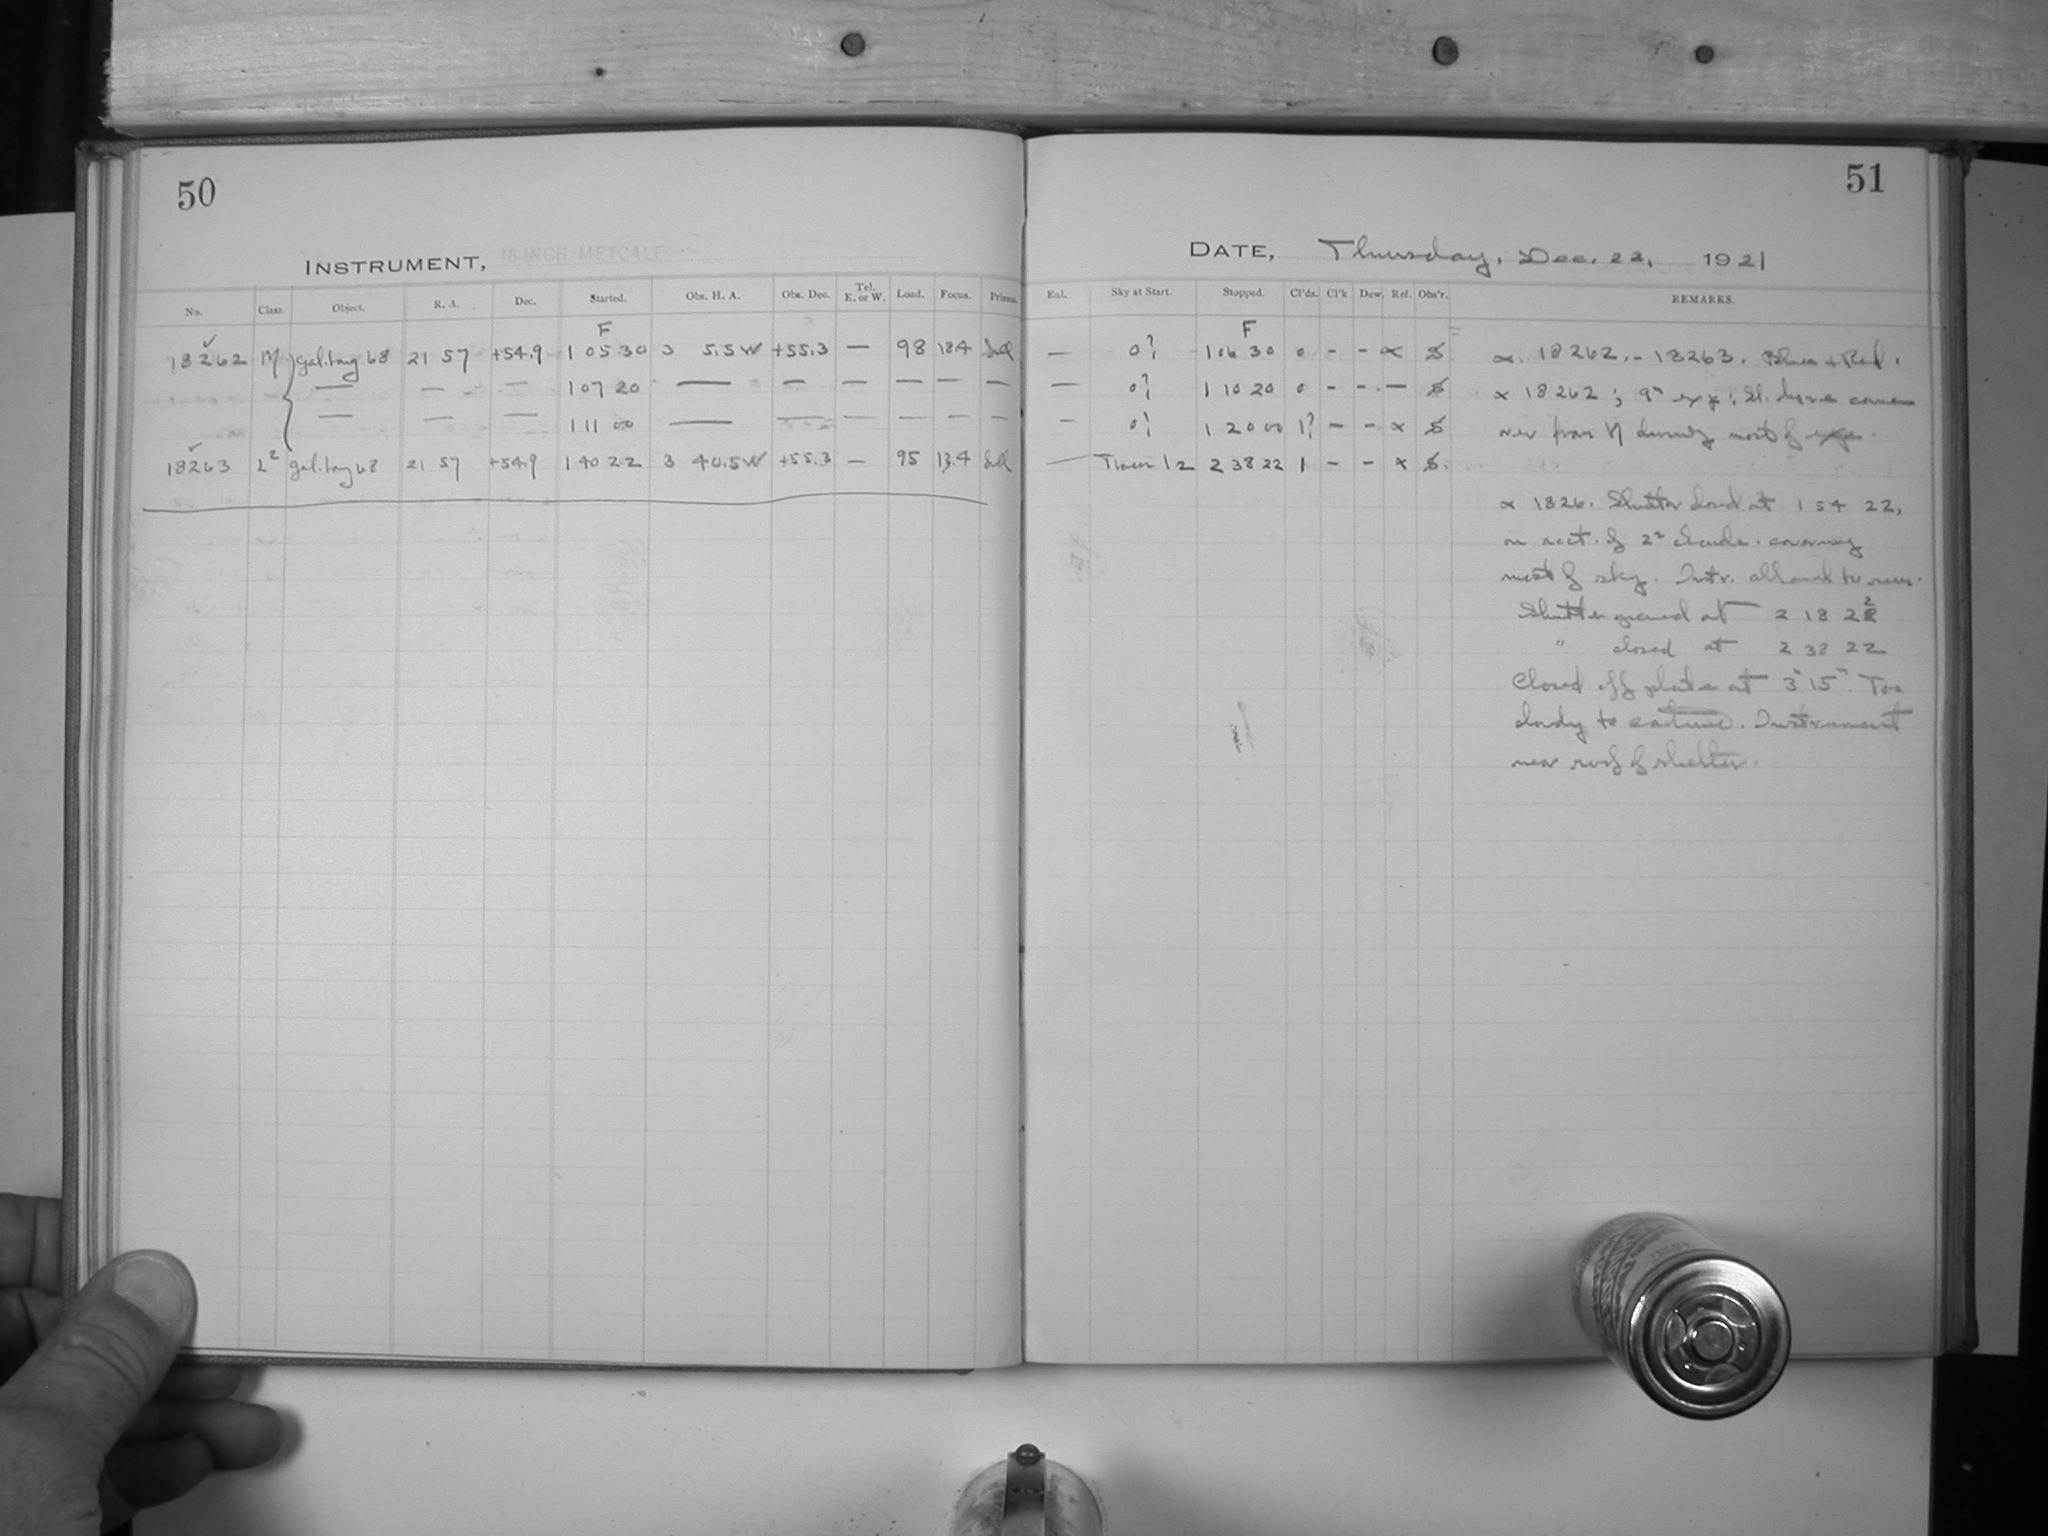 50
51
INSTRUMENT, 16 INCH METCALF
DATE, Thursday, Dec. 22, 1921
No. Class. Object. R. A. Dec. Started. Obs. H. A. Obs. Dec. Tel. E. or W. Load. Focus. Prisms.
Enl. Sky at Start. Stopped. Cl'ds. Cl'k Dew. Ref. Obs'r. REMARKS.
F
F
18262 M gal. long 68 21 57 +54.9 1 05 30 3 5.5 W +55.3 — 98 13.4
— 0? 1 06 30 0 - - x S x 18262 - 18263. Blue + Red.
— — — 1 07 20 — — — — — —
— 0? 1 10 20 0 - - — S x 18262; 9m exp; came
— — — 1 11 00 — — — — — —
— 0? 1 20 00 1? - - x S over from N during most of exp.
18263 L2 gal. long 68 21 57 +54.9 1 40 22 3 40.5 W +55.3 — 95 13.4
— 12 2 38 22 1 - - x S
x 1826. Shutter closed at 1 54 22,
on acct. of 22 clouds. covering
most of sky. Instr. allowed to run.
Shutter opened at 2 18 22
" closed at 2 38 22
Closed off plate at 3h 15m. Too
cloudy to continue. Instrument
near roof of shelter.